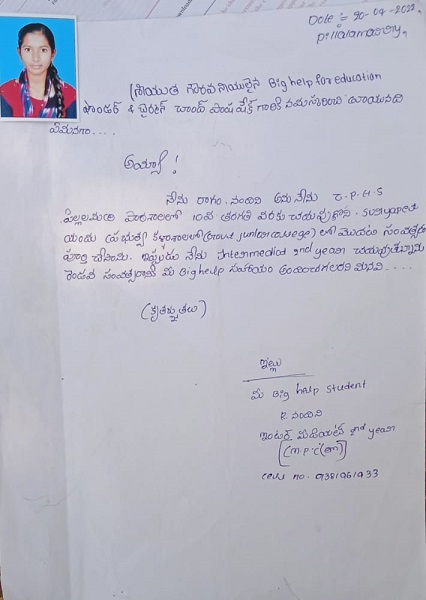 Date :- 20-04-2022,
pillalamarry,
శ్రీయుత గౌరవనీయులైన Big help for education
ఫౌండర్ & ఛైర్మన్ చాంద్ పాషా షేక్ గారికి నమస్కరించి వ్రాయునది
ఏమనగా....
అయ్యా !
నేను రాగం. నందిని అను నేను Z.P.H.S
పిల్లలమర్రి పాఠశాలలో 10వ తరగతి వరకు చదువుకొని. Suryapet
యందు ప్రభుత్వ కళాశాలలో (Govt junior college) లో మొదటి సంవత్సరం
పూర్తి చేసితిని. ఇప్పుడు నేను Intermediat 2nd year చదువుతున్నాను
రెండవ సంవత్సరానికి మీ Big help సహాయం అందించగలరని మనవి....
(కృతజ్ఞతలు)
ఇట్లు
మీ Big help student
R నందిని
ఇంటర్ మీడియేట్ 2nd year
[(m.p.c(em)]
cell no. 9381961933